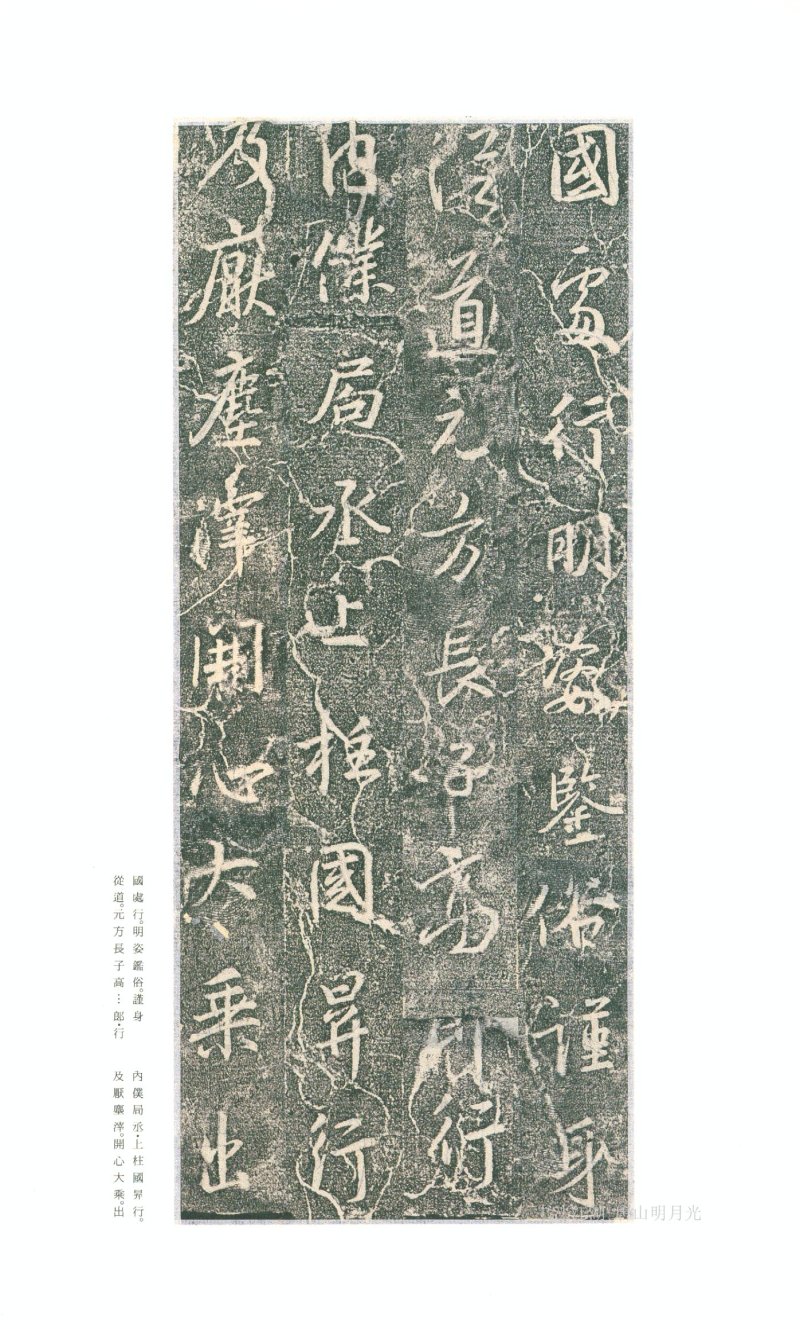 國處行明姿鑒俗謹身
從道元方長子高
内僕局丞上柱國昇行
及厭塵滓開心大乘出
國處行。明姿鑑俗。謹身
從道。元方長子高…郎・行
內僕局丞・上柱國昇行。
及厭塵滓。開心大乘。出
山明月光